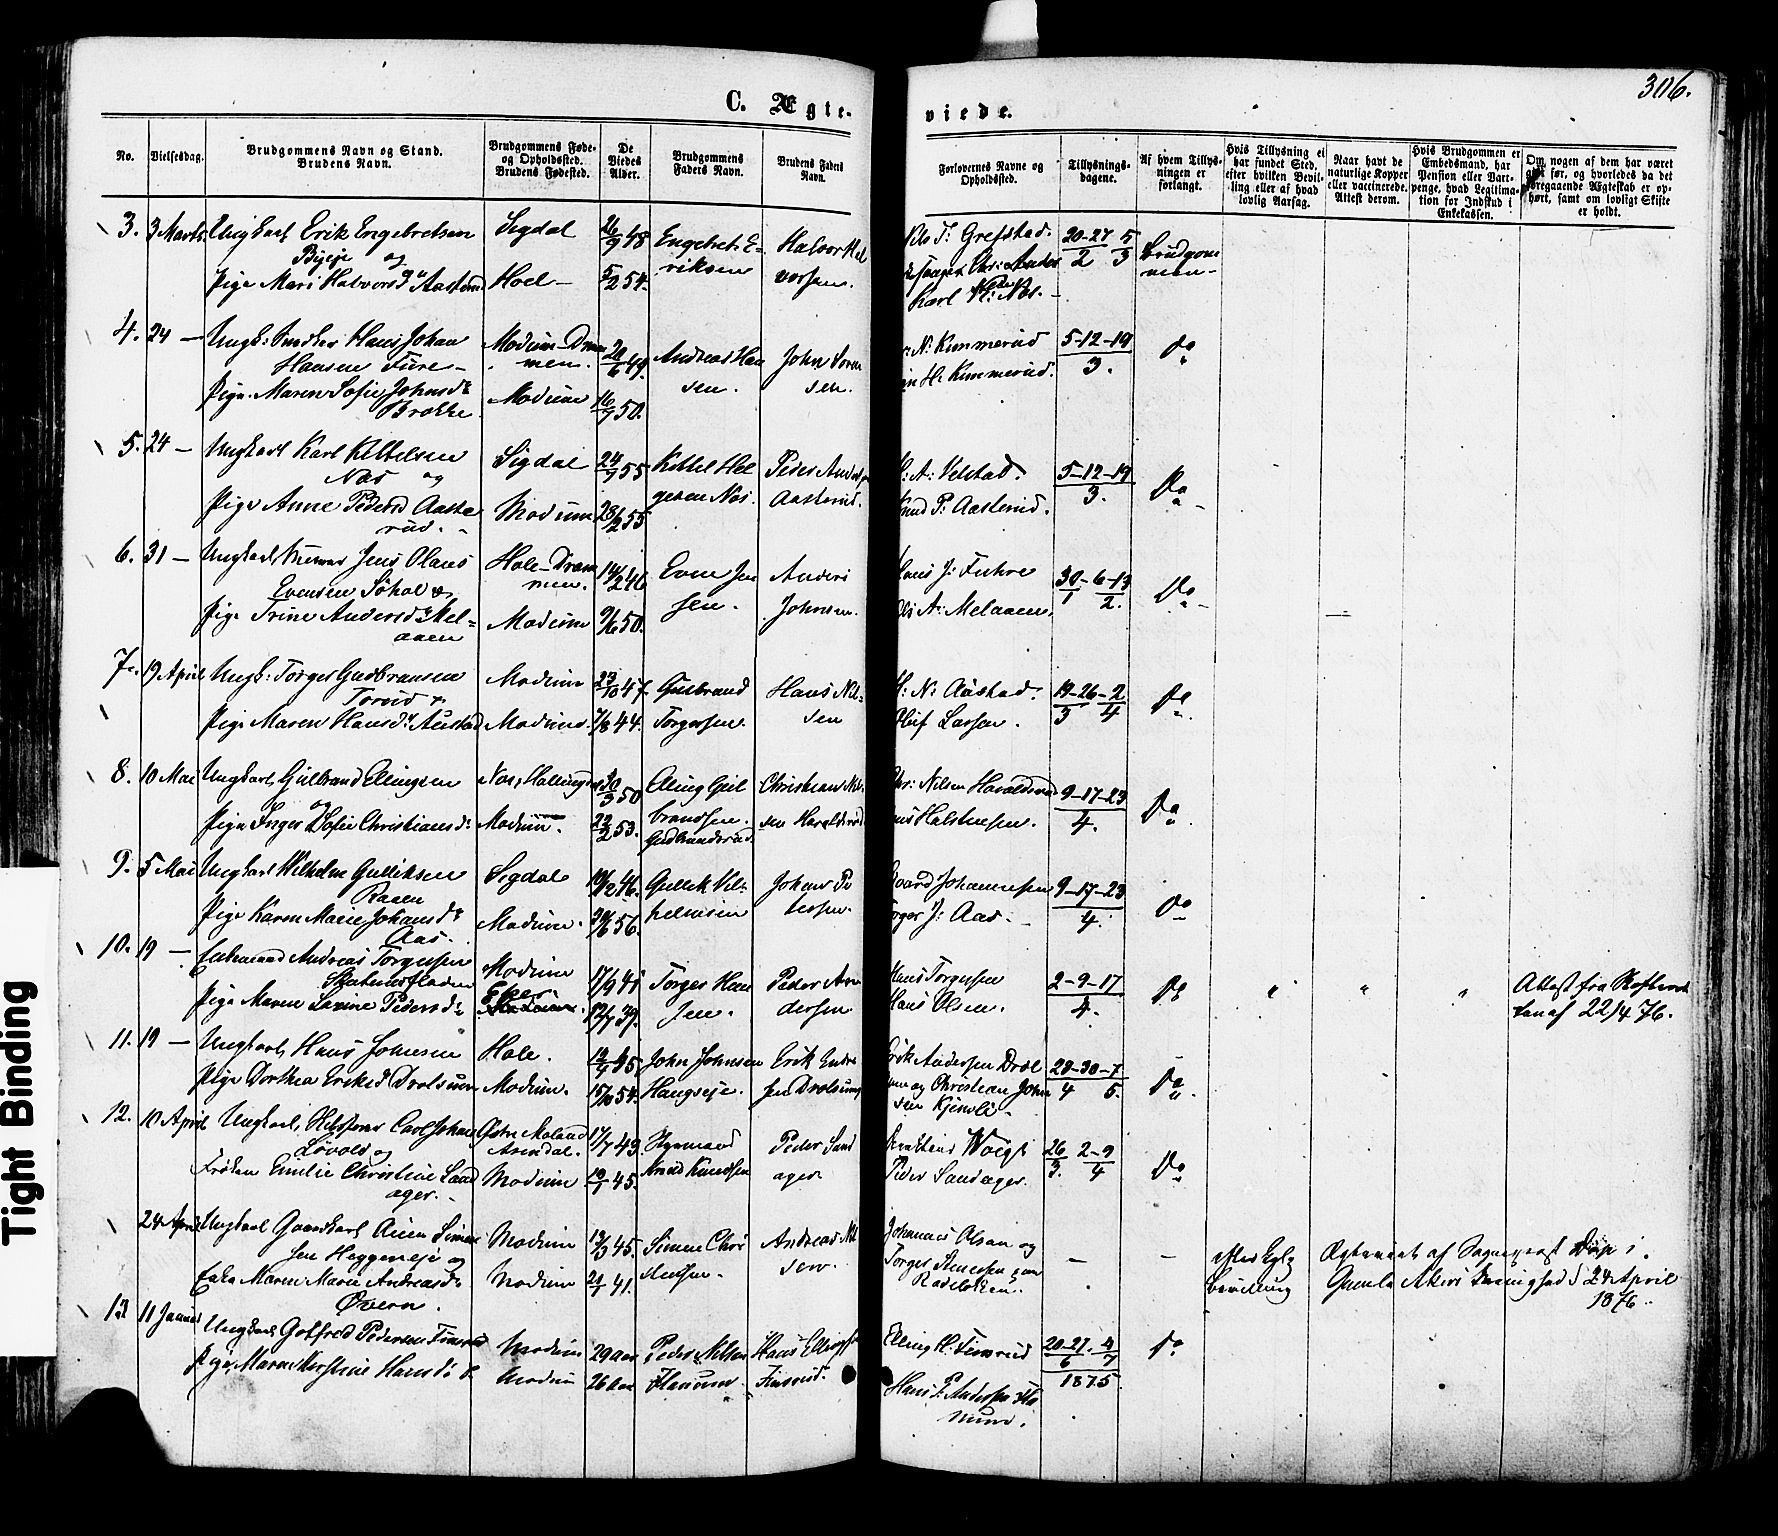 306.
C. Ægte-
viede.
No.
Vielsesdag.
Brudgommens Navn og Stand.
Brudens Navn.
Brudgommens Føde-
og Opholdssted.
Brudens Fødested.
De
Viedes
Alder.
Brudgommens
Faders Navn.
Brudens Faders
Navn.
Forlovernes Navne og
Opholdssted.
Tillysnings-
dagene.
Af hvem Tillys-
ningen er
forlangt.
Hvis Tillysning ei
har fundet Sted,
efter hvilken Bevil-
ling eller af hvad
lovlig Aarsag.
Naar havt de
naturlige Kopper
eller vaccinerede.
Attest derom.
Hvis Brudgommen er
Embedsmand, har
Pension eller Vart-
penge, hvad Legitima-
tion for Indskud i
Enkekassen.
Om nogen af dem har været
gift før, og hvorledes da det
foregaaende Ægteskab er op-
hørt, samt om lovligt Skifte
er holdt.
3. 3 Marts. Ungkarl Erik Engebretsen
og
Pige Mari Halvorsd. Aasterud
Sigdal
Hoel
26/9 48
5/2 54.
Engebret E-
riksen
Halvor Hal
vorsen.
T: Grefstad.
Karl
20-27 5
2 3
Brudgom
men
4. 24 — Ungk: Snedker Hans Johan
Hansen Fure
Pige. Maren Sofie Johnsd.
Brokke
Modum-Dram
men.
Modum
20/6 49.
16/7 50.
Andreas Han
sen.
John Soren
sen.
N: Kummerud
H: Kummerud.
5-12-19
3.
Do
5. 24 — Ungkarl Karl Kittelsen
Næs og
Pige Anne Pedersd Aaste
rud.
Sigdal
Modum
24/9 55
28/2 55
Kittel Hel
gesen Næs.
Peder Anders
Aasterud.
A: Velstad.
Knud P: Aasterud.
5-12-19
3.
Do
6. 31 — Ungkarl, Jens Olaus
Evensen Søhol &
Pige Trine Andersd. Mel=
aaen
Hole-Dram
men.
Modum
14/2 46
9/6 50.
Even Jen
sen.
Anders
Johnsen.
Hans J: Fuhre
A: Melaaen,
30-6-13
1 2.
Do
7. 19 April Ungk: Torger Gudbransen
Torud &
Pige Maren Hansd. Austad
Modum
Modum.
23/10 47.
7/8 44.
Gudbrand
Torgersen.
Hans Nil-
sen
H: N: Austad.
Oluf Larsen.
19-26-2
3 4
Do
8. 10 Mai Ungkarl, Gulbrand Ellingsen
og
Pige Inger Sofie Christiansd.
Næs, Hallingdal
Modum.
30/3 50
22/2 53.
Eling Gul
brandsen.
Gudbrandsrud.
Christian Nil-
sen Haraldsrud
Chr: Nilsen Haraldsrud
Halstensen.
9-17-23
4.
Do
9. 5 Mai Ungkarl Wilhelm Gulliksen
Raaen
Pige Karen Marie Johansd.
Aas.
Sigdal
Modum.
10/2 46.
30/6 56.
Gullik Vil-
helmsen
Johan Pe
tersen.
Johannesen
Torger J: Aas.
9-17-23
4.
Do
10. 19 — Enkemand Andreas Torgersen
Pige Maren Laxine Pedersd.
Modum
Eker
17/9 41
12/7 39.
Torger Han
sen.
Peder An
dersen
Hans Torgersen
Hans Olsen.
2-9-17
4.
Do
Attest fra Skifteret
ten af 22/4 76.
11. 19 — Ungkarl, Hans Johnsen
Pige Dorthea Eriksd Drolsum
Hole.
Modum.
John Johnsen
Haugseje.
Erik Endre
sen Drolsum
Erik Andersen Drol
sum og Christian John
sen
23-30-7
4 5.
Do
12. 10 April Ungkarl, Carl Johan
Løvold og
Frøken Emilie Christine Sand
ager.
Østre Moland
Arendal.
Modum
17/7 43.
19/1 45.
Arned Knudsen
Peder Sand
ager
Woigt
Peder Sandager.
26 2-9
3. 4
Do
24 April Ungkarl Gaardkarl Simon
sen Heggeneje og
Enke Maren Marie Andreasd.
Øvern.
Modum
Modum
19/3 45.
21/1 41.
Simen Chri
stensen.
Andreas Nil
sen.
Johannes Olsen og
Torger Stenersen
—
—
efter Kgl
bevilling
Ægteviet af Sogneprest i
Gamle Akers Menighed d 24 April
1876.
13 11 Januar Ungkarl Gotfred Pedersen
Pige Maren Kirstine Hansd.
Modum
Modum
29 Aar
26 Aar
Peder Nilsen
Hans Ellingsen
Finsrud.
Elling H: Finsrud
Hans P. Andersen
20-27-4
6 7
1875
Do
Tight Binding